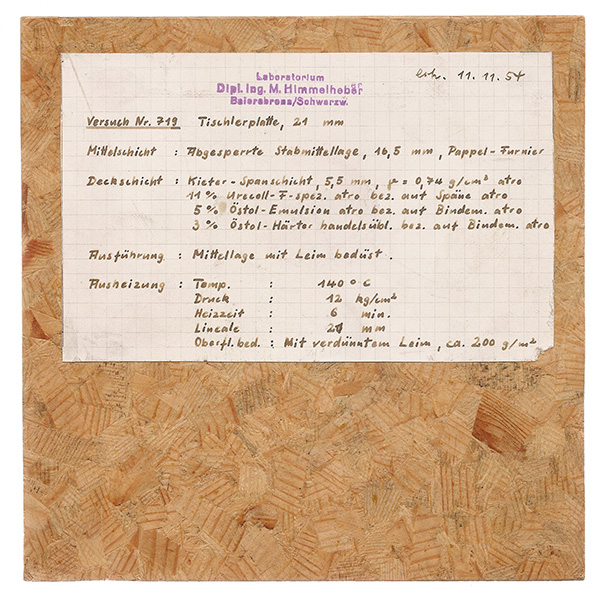 Laboratorium
Dipl. Ing. M. Himmelheber
Baiersbronn/Schwarzw.
11.11.54
Versuch Nr. 719 Tischlerplatte, 21 mm
Mittelschicht : Abgesperrte Stabmittellage, 16,5 mm, Pappel-Furnier
Deckschicht : Kiefer-Spanschicht, 5,5 mm, γ = 0,74 g/cm³ atro
11 % Urecoll-F-spez. atro bez. auf Späne atro
5 % Östol-Emulsion atro bez. auf Bindem. atro
3 % Östol-Härter handelsübl. bez. auf Bindem. atro
Ausführung : Mittellage mit Leim bedüst.
Ausheizung : Temp. : 140 ° C
Druck : 12 kg/cm²
Heizzeit : 6 min.
Lineale : 21 mm
Oberfl.bed. : Mit verdünntem Leim, ca. 200 g/m²